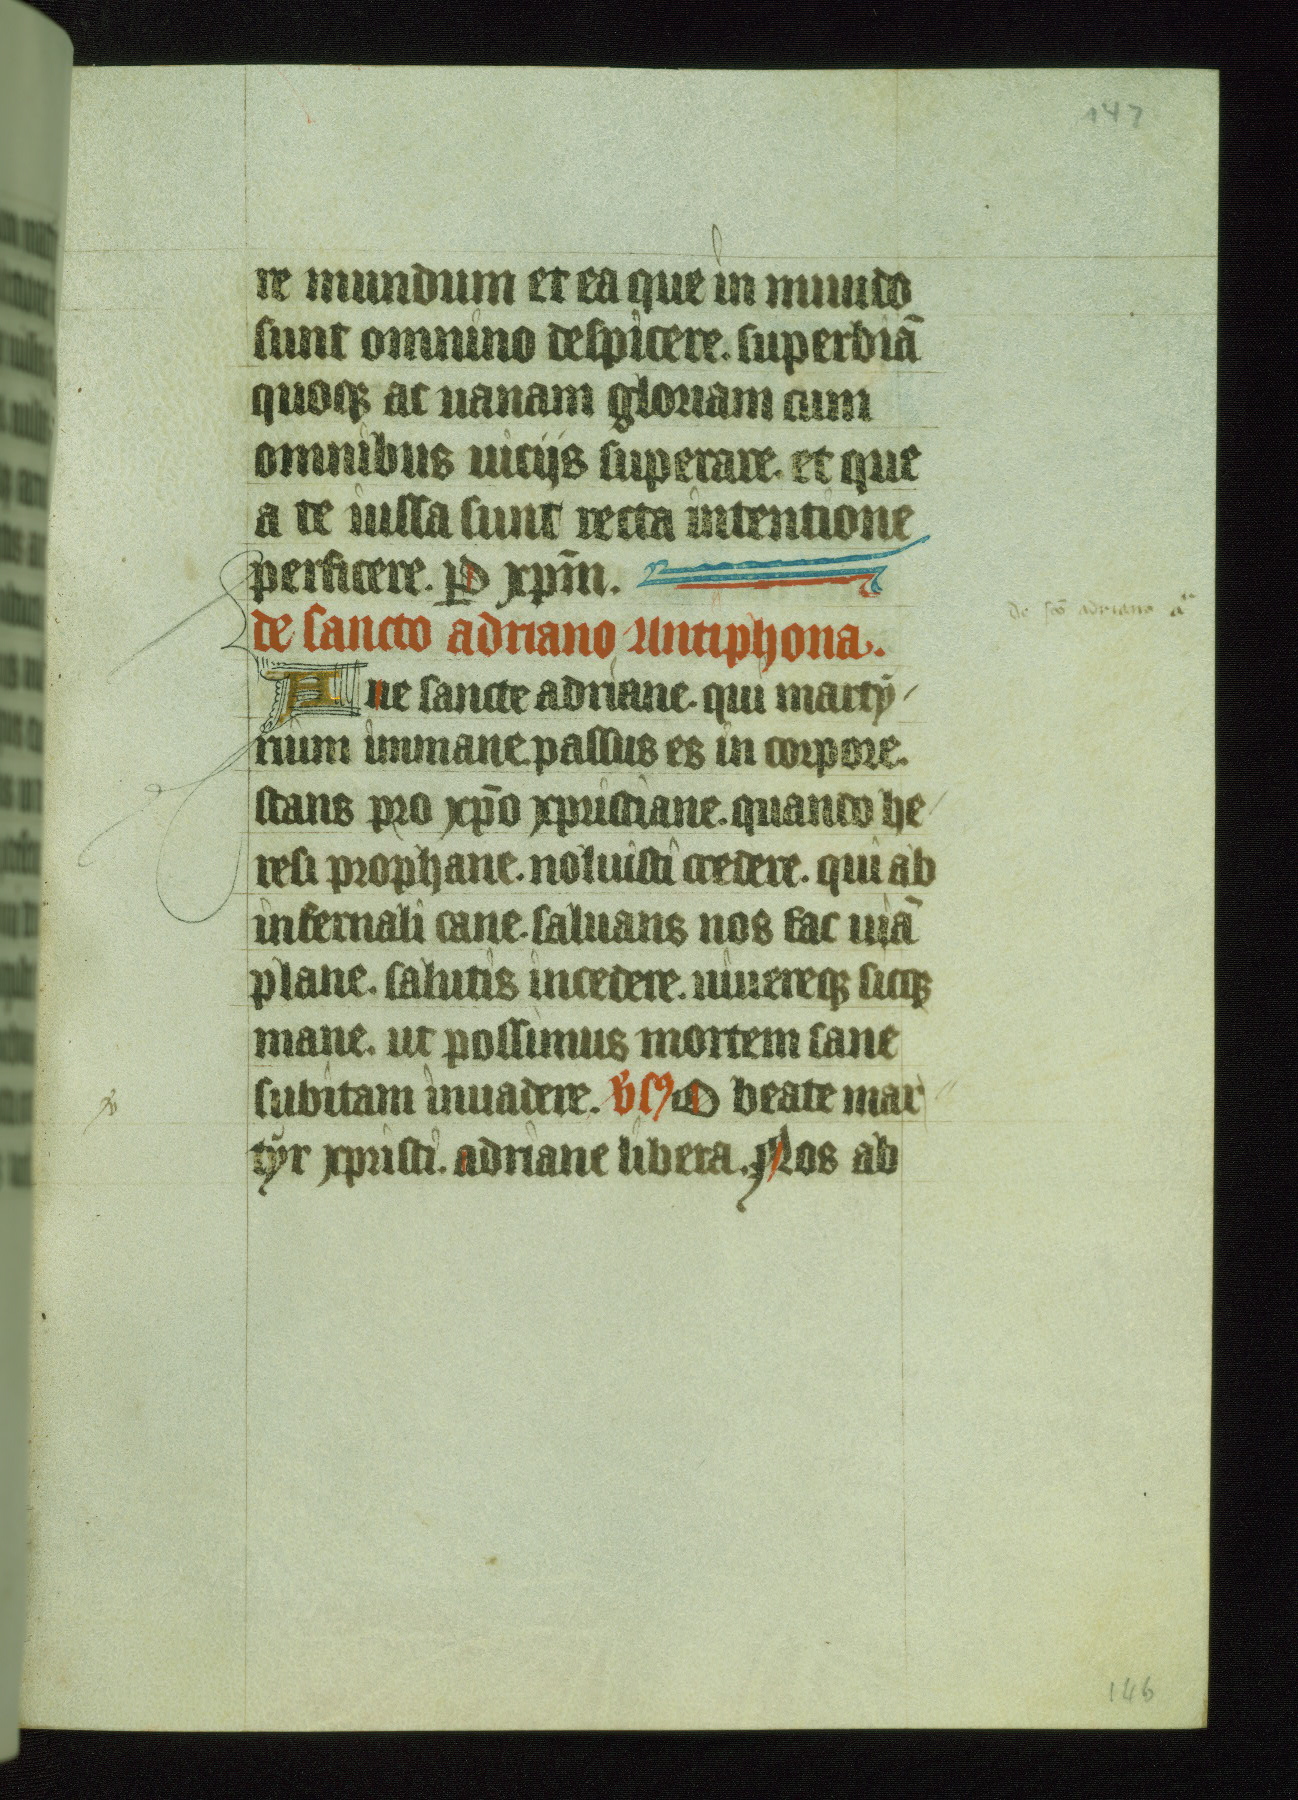 147
re mundum et ea que in mundo
sunt omnino despicere. superbiā
quoqꝫ ac uanam gloriam cum
omnibus uicijs superare. et que
a te iussa sunt recta intentione
perficere. P̲ xp̄m.
de sancto adriano Antiphona.
de sc̄o adriano aᵃ
Aue sancte adriane. qui marty
rium immane. passus es in corpore.
stans pro xp̄o xpristiane. quando he
resi prophane. noluisti credere. qui ab
infernali cane. saluans nos fac uiā
plane. salutis incedere. uiuereqꝫ sicqꝫ
mane. ut possimus mortem sane
subitam inuadere. v̓sꝯ O beate mar
tyr xpristi. adriane libera. Nos ab
146